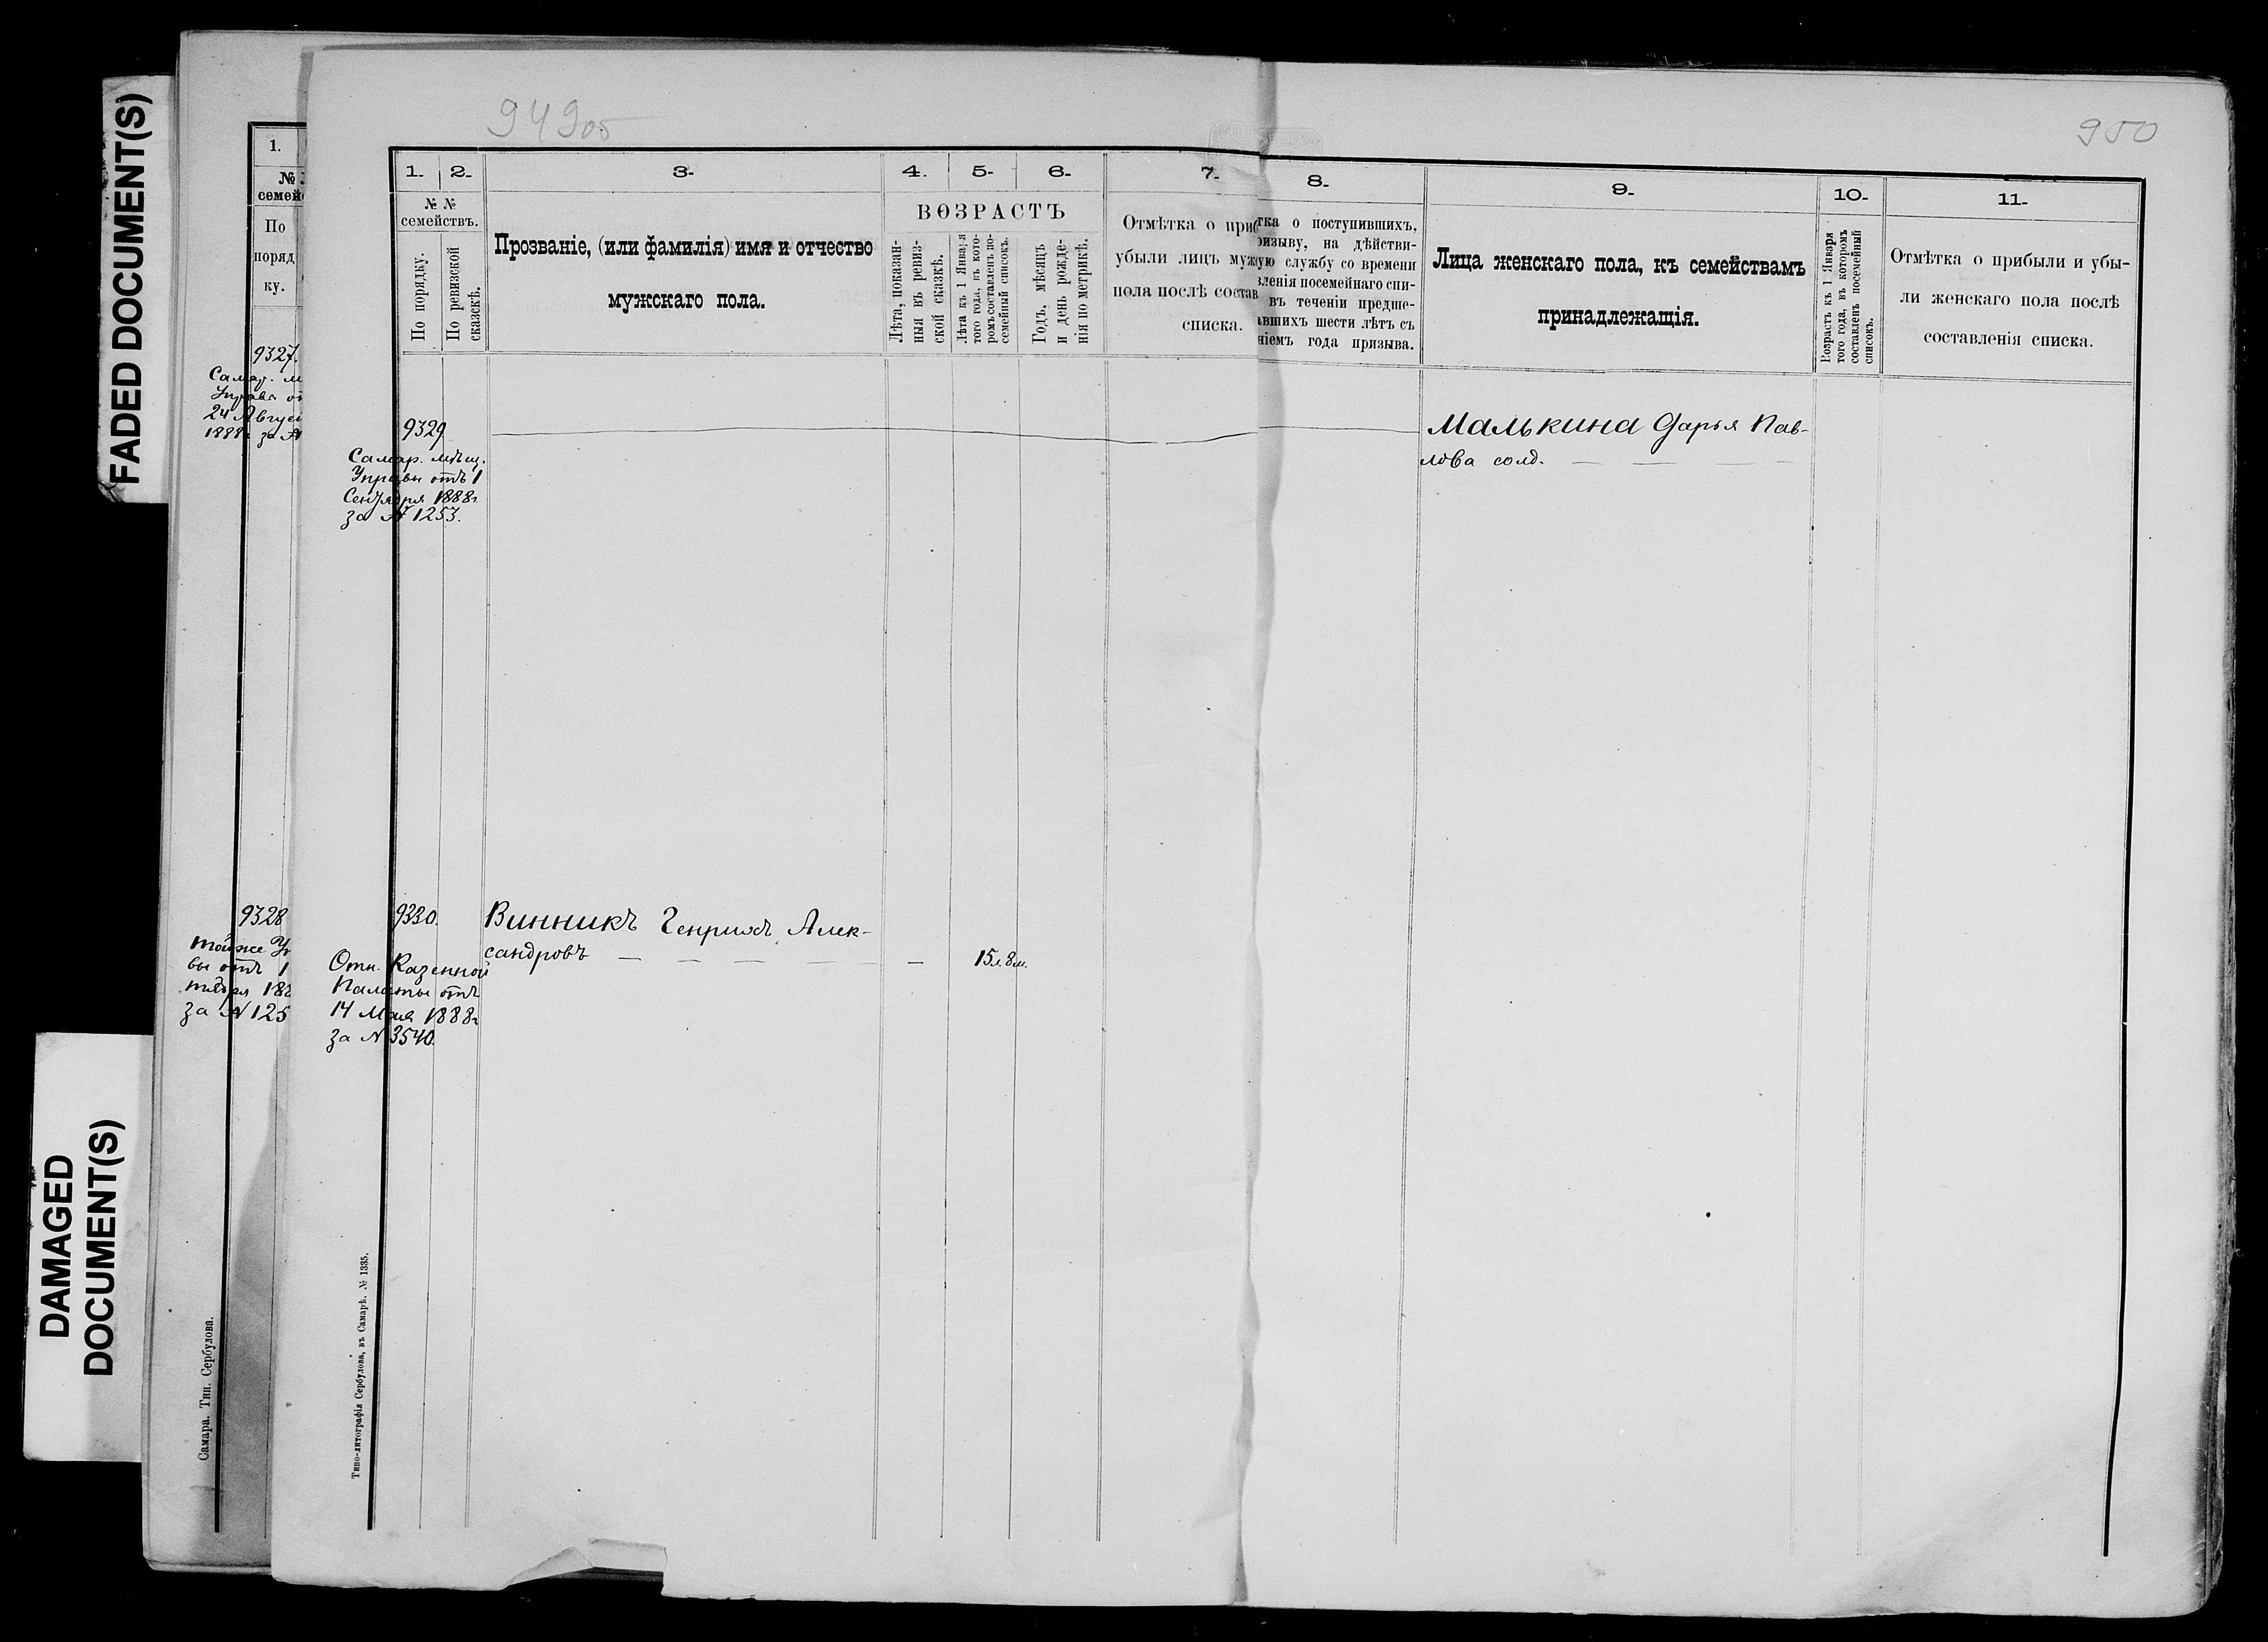 FADED DOCUMENT(S)
DAMAGED
DOCUMENT(S)
1.
семей
По
поряд
ку.
9327.
24 Авгус
1888 за №
9328
Тойже У
вы отъ 1
за № 125
Самара. Тип. Сербулова.
949об
950
1. 2. 3. 4. 5. 6. 7. 8. 9. 10. 11.
№ №
семействъ.
По порядку.
По ревизской
сказкѣ.
Прозваніе, (или фамилія) имя и отчество
мужскаго пола.
ВОЗРАСТЪ
Лѣта, показан-
ныя въ ревиз-
ской сказкѣ.
Лѣта къ 1 Января
того года, въ кото-
ромъ составленъ по-
семейный списокъ.
Годъ, мѣсяцъ
и день рожде-
нія по метрикѣ.
Отмѣтка о приб
убыли лицъ муж
пола послѣ состав
списка.
тка о поступившихъ,
ризыву, на дѣйстви-
ую службу со времени
вленія посемейнаго спи-
въ теченіи предше-
авшихъ шести лѣтъ съ
ніемъ года призыва.
Лица женскаго пола, къ семействамъ
принадлежащія.
Возрастъ къ 1 Января
того года, въ которомъ
составленъ посемейный
списокъ.
Отмѣтка о прибыли и убы-
ли женскаго пола послѣ
составленія списка.
9329
Самар. мѣщ.
Управы отъ 1
Сентября 1888г
за № 1253.
Малькина Дарья Пав-
лова солд. — — —
9330.
Винникъ Генрихъ Алек-
сандровъ — — — — — — 15л. 8м.
Отн. Казенной
Палаты отъ
14 Мая 1888г
за № 3540.
Типо-литографія Сербулова, въ Самарѣ. № 1335.